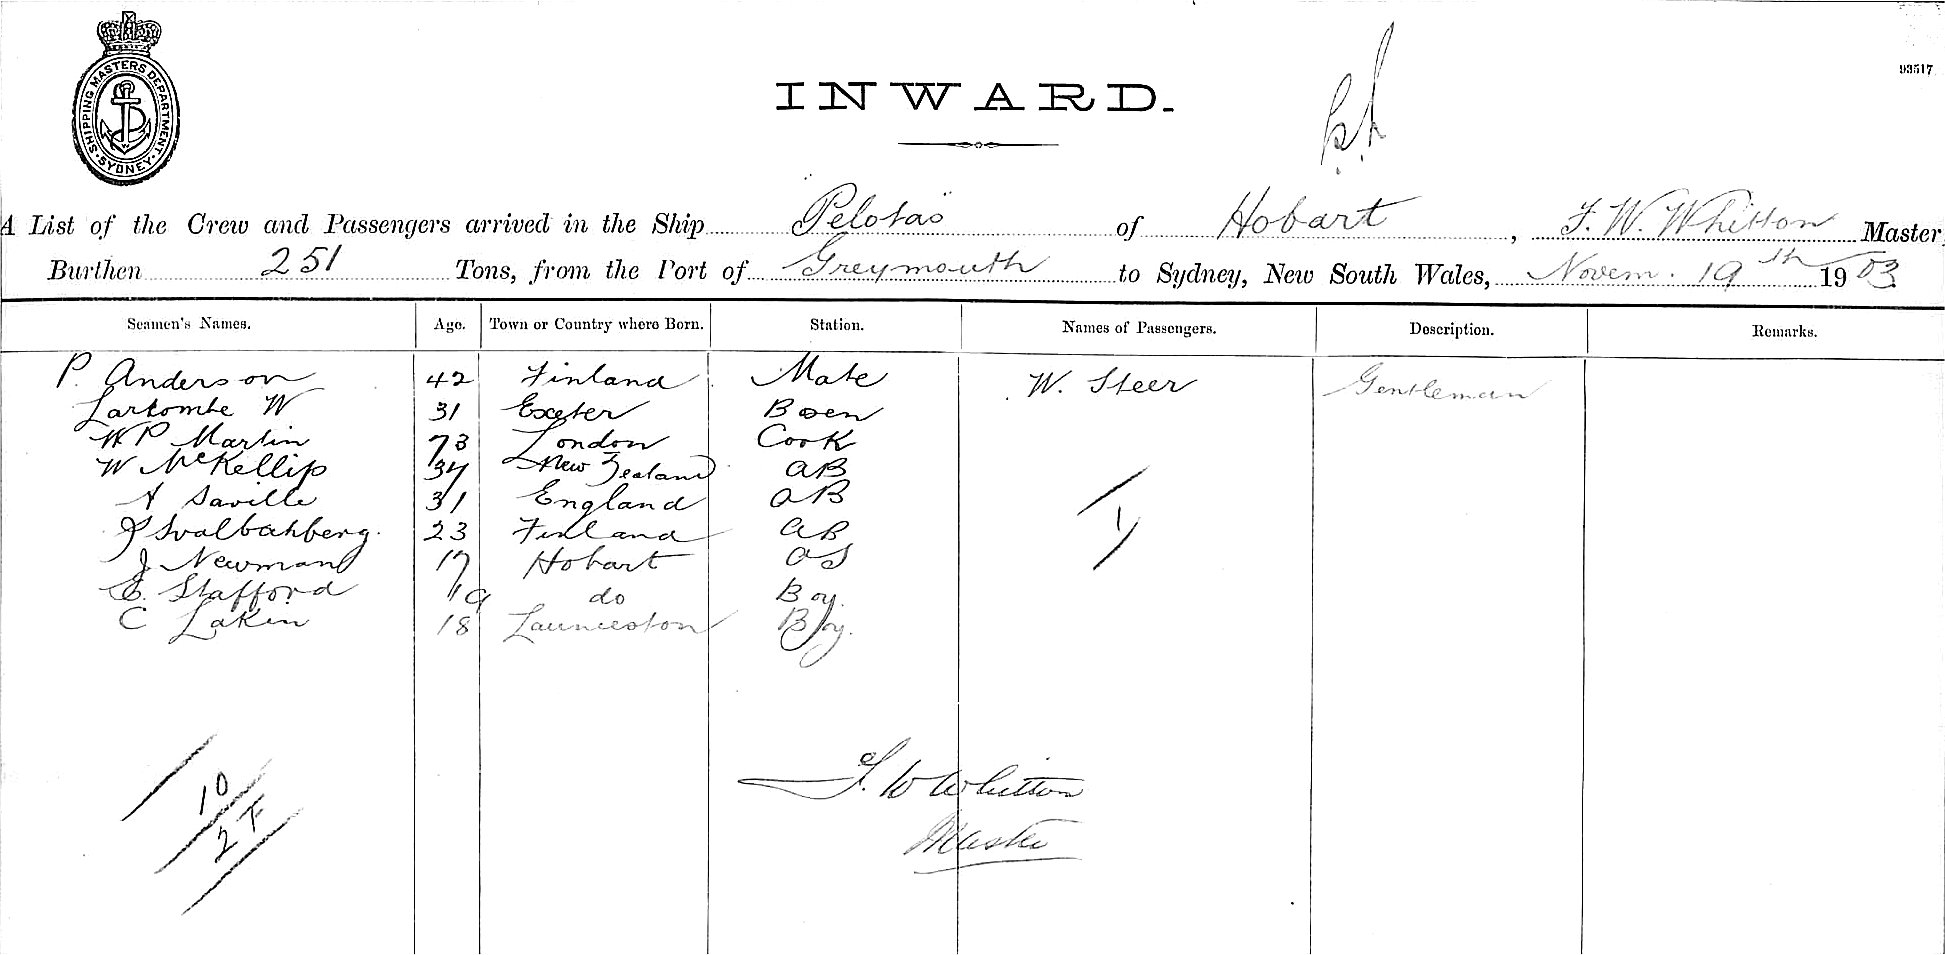 SHIPPING MASTERS DEPARTMENT. SYDNEY.
93517
INWARD.
A List of the Crew and Passengers arrived in the Ship "Pelotas" of Hobart, F. W. Whitton Master,
Burthen 251 Tons, from the Port of Greymouth to Sydney, New South Wales, Novem. 19th 1903
Seamen's Names. Age. Town or Country where Born. Station. Names of Passengers. Description. Remarks.
P. Anderson 42 Finland Mate W. Steer Gentleman
Larkombe W 31 Exeter Bosen
W P Martin 73 London Cook
W McKellip 34 New Zealand AB
A Saville 31 England AB
23 Finland AB
J Newman 17 Hobart OS
E. Stafford 19 do Boy.
C Lakin 18 Launceston Boy.
1
10
2 F
F. W Whitton
Master